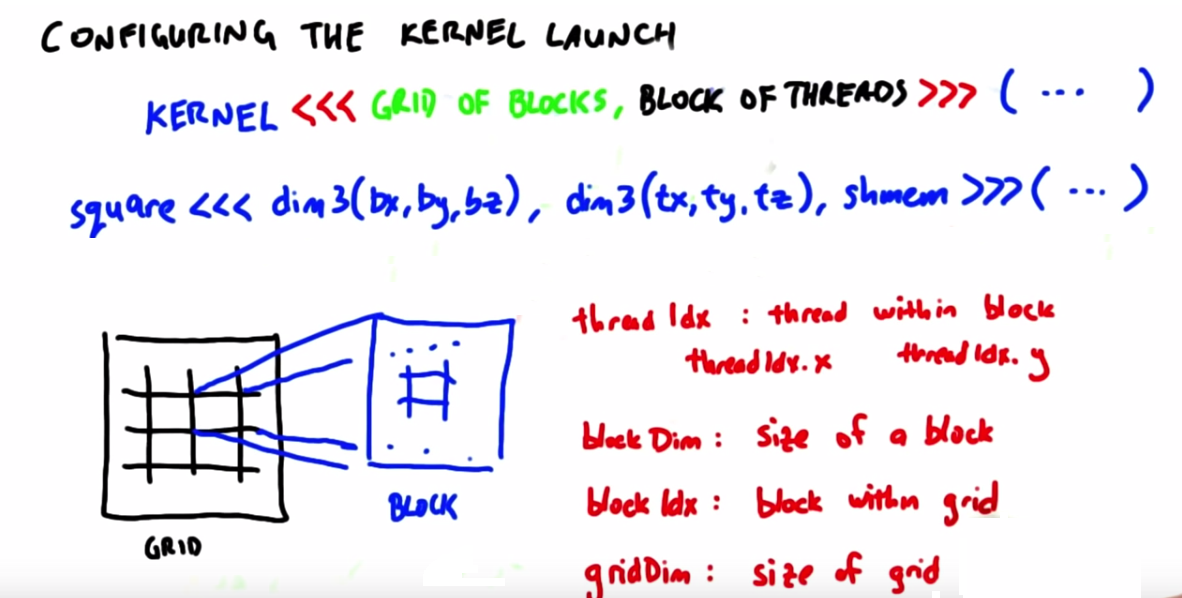 CONFIGURING THE KERNEL LAUNCH
KERNEL <<< GRID OF BLOCKS, BLOCK OF THREADS >>> ( ... )
square <<< dim3(bx, by, bz), dim3(tx, ty, tz), shmem >>> ( ... )
thread Idx : thread within block
threadIdx.x threadIdx.y
block Dim : size of a block
block Idx : block within grid
gridDim : size of grid
BLOCK
GRID